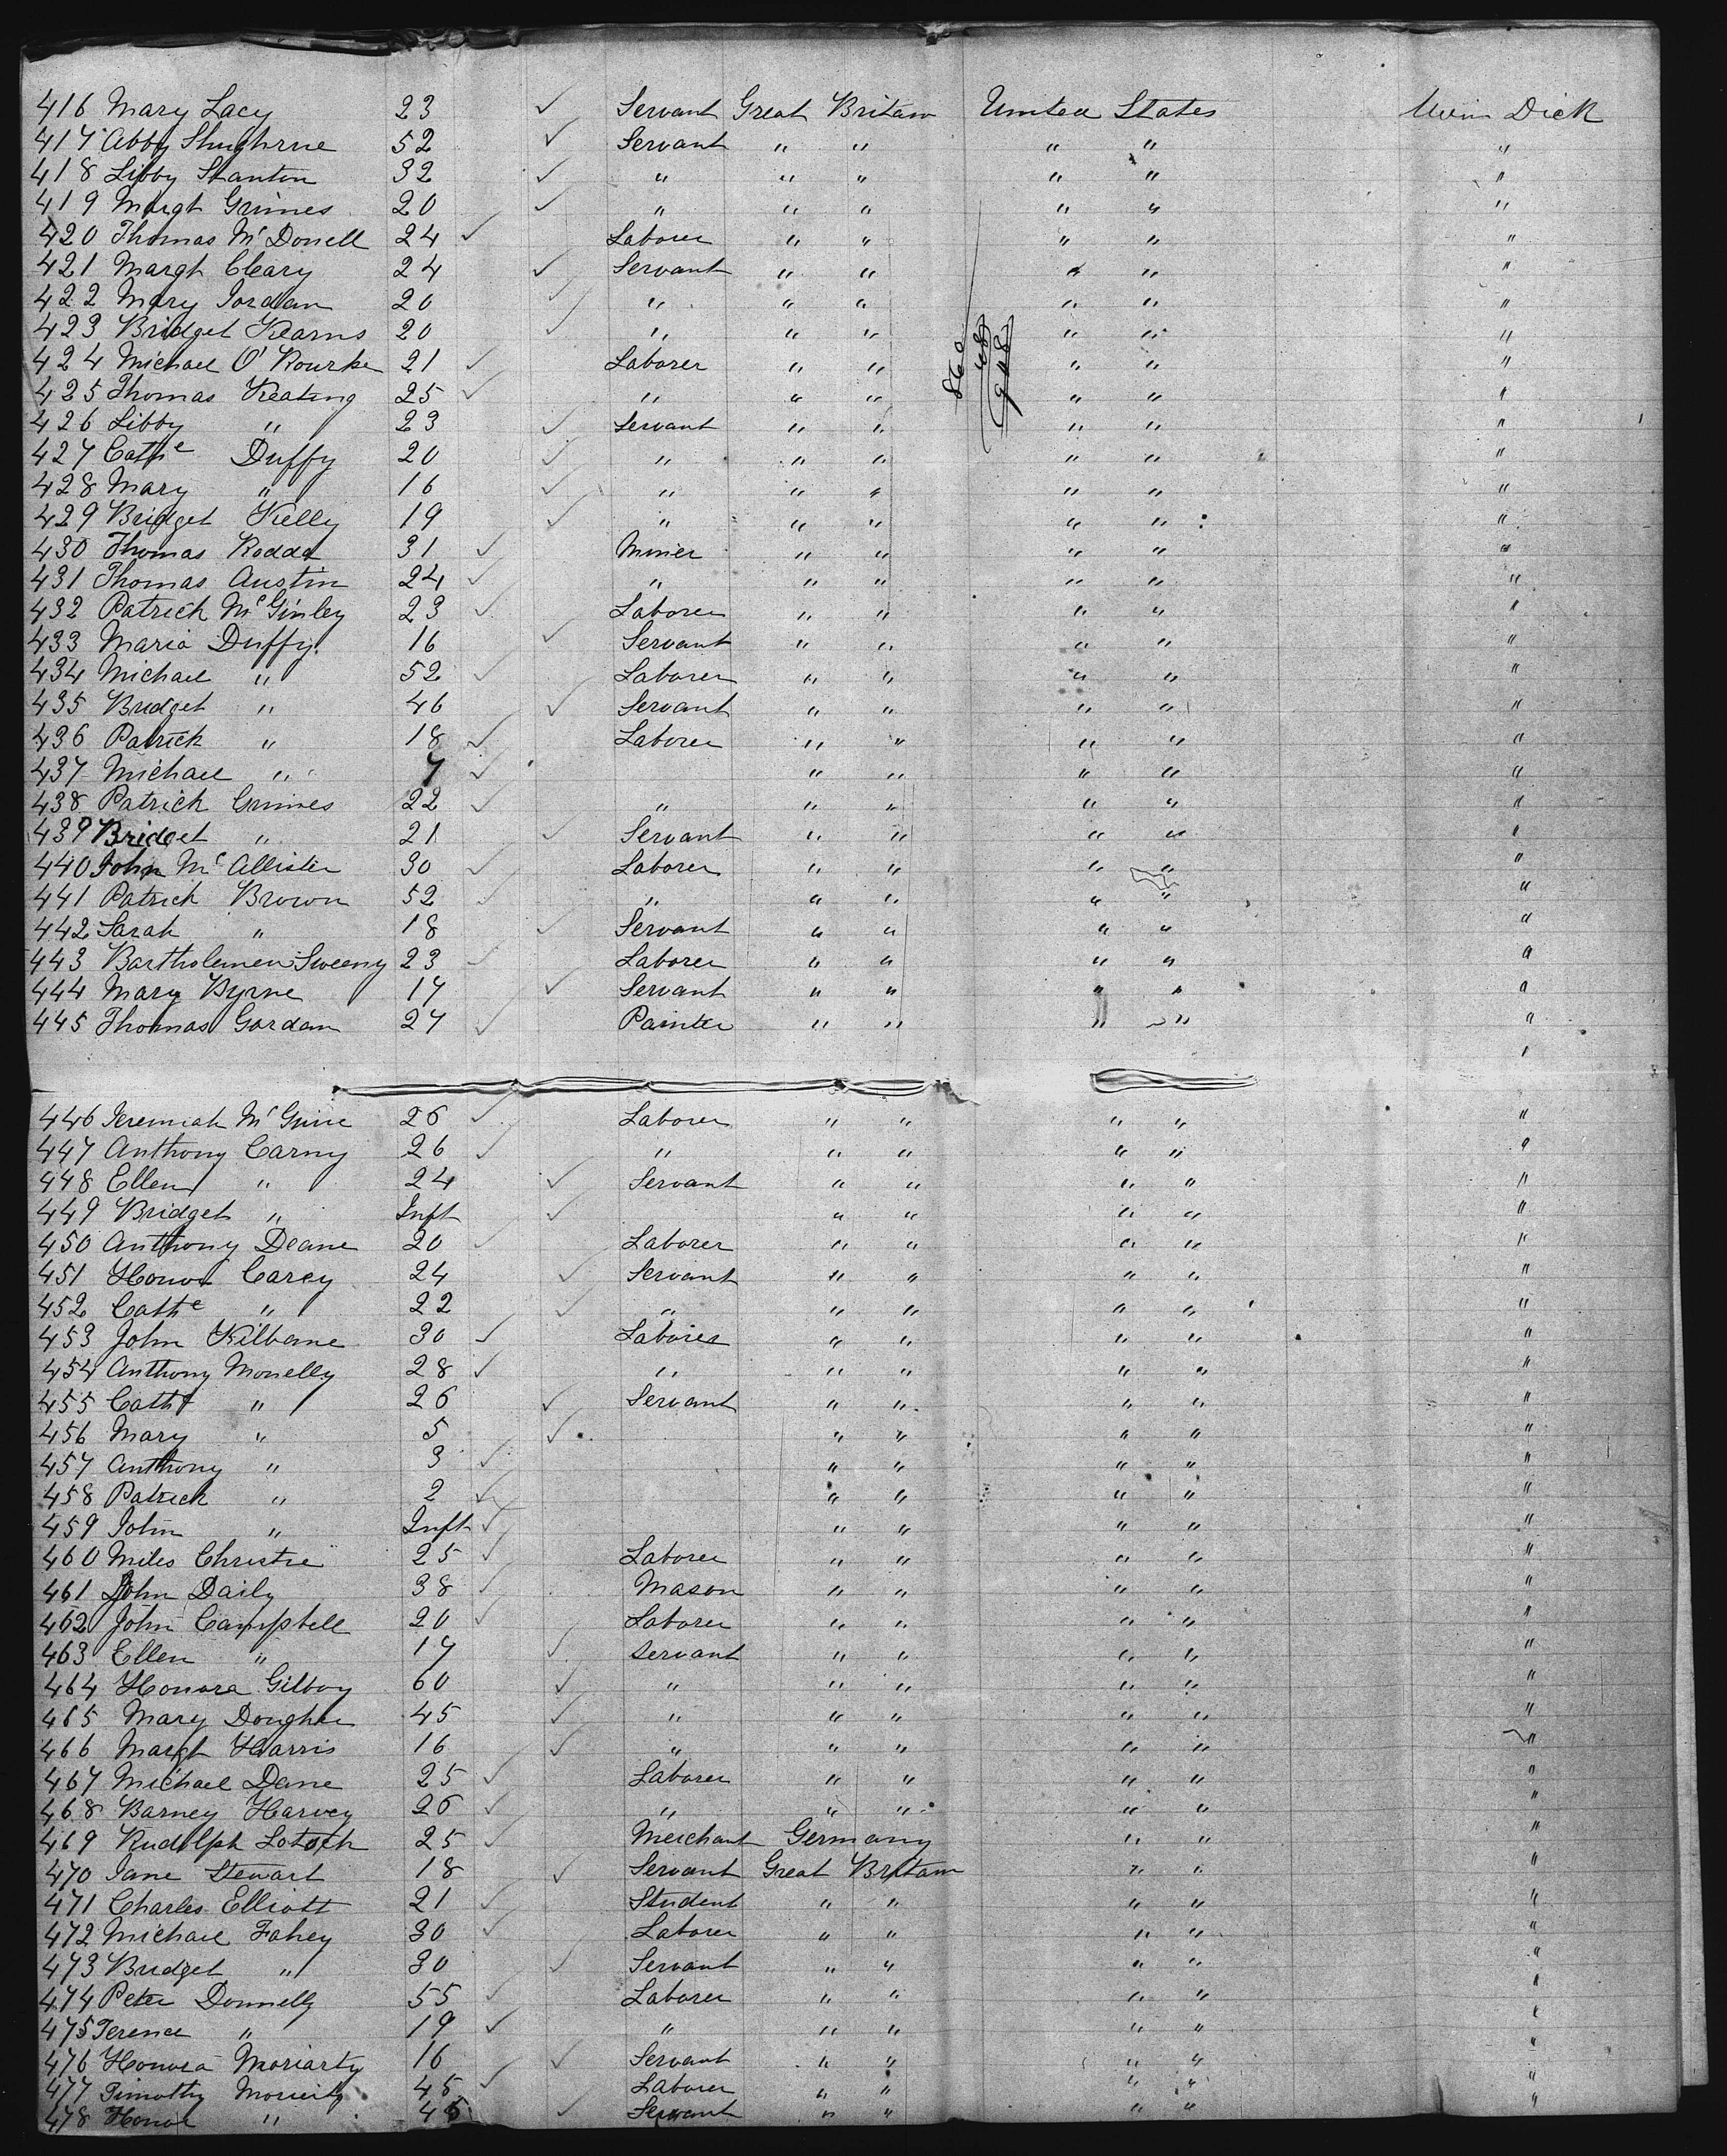 416 Mary Lacy 23 ✓ Servant Great Britain United States Main Dick
417 Abby Shughrue 52 ✓ Servant " " " " "
418 Libby Stanton 32 ✓ " " " " " "
419 Margt Grimes 20 ✓ " " " " " "
420 Thomas McDonell 24 ✓ Laborer " " " " "
421 Margt Cleary 24 ✓ Servant " " " " "
422 Mary Jordan 20 ✓ " " " " " "
423 Bridget Kearns 20 ✓ " " " " " "
424 Michael O'Rourke 21 ✓ Laborer " " " " "
425 Thomas Keating 25 ✓ " " " " " "
426 Libby " 23 ✓ Servant " " " " "
427 Cathe Duffy 20 ✓ " " " " " "
428 Mary " 16 ✓ " " " " " "
429 Bridget Kelly 19 ✓ " " " " " "
430 Thomas Rodda 31 ✓ Miner " " " " "
431 Thomas Austin 24 ✓ " " " " " "
432 Patrick McGinley 23 ✓ Laborer " " " " "
433 Maria Duffy 16 ✓ Servant " " " " "
434 Michael " 52 ✓ Laborer " " " " "
435 Bridget " 46 ✓ Servant " " " " "
436 Patrick " 18 ✓ Laborer " " " " "
437 Michael " 7 ✓ " " " " "
438 Patrick Grimes 22 ✓ " " " " " "
439 Bridget " 21 ✓ Servant " " " " "
440 John McAllister 30 ✓ Laborer " " " " "
441 Patrick Brown 52 ✓ " " " " " "
442 Sarah " 18 ✓ Servant " " " " "
443 Bartholemew Sweeny 23 ✓ Laborer " " " " "
444 Mary Byrne 17 ✓ Servant " " " " "
445 Thomas Gordan 27 ✓ Painter " " " " "
446 Jeremiah 26 ✓ Laborer " " " " "
447 Anthony Carny 26 ✓ " " " " " "
448 Ellen " 24 ✓ Servant " " " " "
449 Bridget " Inft ✓ " " " " "
450 Anthony Deane 20 ✓ Laborer " " " " "
451 Honor Carey 24 ✓ Servant " " " " "
452 Cathe " 22 ✓ " " " " " "
453 John Kilbane 30 ✓ Laborer " " " " "
454 Anthony Monelly 28 ✓ " " " " " "
455 Cathe " 26 ✓ Servant " " " " "
456 Mary " 5 ✓ " " " " "
457 Anthony " 3 ✓ " " " " "
458 Patrick " 2 ✓ " " " " "
459 John " Inft ✓ " " " " "
460 Miles Christie 25 ✓ Laborer " " " " "
461 John Daily 38 ✓ Mason " " " " "
462 John Campbell 20 ✓ Laborer " " " " "
463 Ellen " 17 ✓ Servant " " " " "
464 Honora Gilboy 60 ✓ " " " " " "
465 Mary 45 ✓ " " " " " "
466 Margt Harris 16 ✓ " " " " " "
467 Michael Dane 25 ✓ Laborer " " " " "
468 Barney Harvey 26 ✓ " " " " " "
469 Rudolph 25 ✓ Merchant Germany " " "
470 Jane Stewart 18 ✓ Servant Great Britain " " "
471 Charles Elliott 21 ✓ Student " " " " "
472 Michael Fahey 30 ✓ Laborer " " " " "
473 Bridget " 30 ✓ Servant " " " " "
474 Peter Donnelly 55 ✓ Laborer " " " " "
475 Terence " 19 ✓ " " " " " "
476 Honora Moriarty 16 ✓ Servant " " " " "
477 Timothy 45 ✓ Laborer " " " " "
478 Honor " 45 ✓ Servant " " " " "